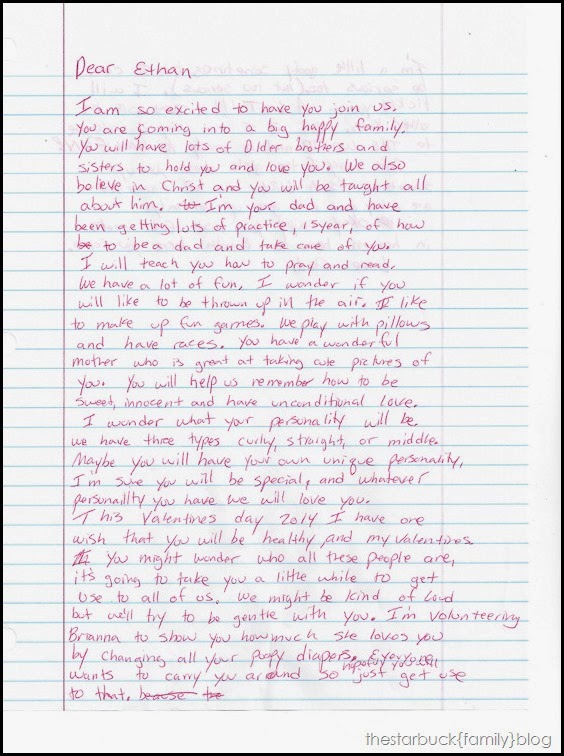 Dear Ethan
I am so excited to have you join us.
You are coming into a big happy family.
You will have lots of Older brothers and
sisters to hold you and love you. We also
beleve in Christ and you will be taught all
about him. to I'm your dad and have
been getting lots of practice, 15year, of how
be to be a dad and take care of you.
I will teach you how to pray and read.
We have a lot of fun. I wonder if you
will like to be thrown up in the air. I like
to make up fun games. We play with pillows
and have races. You have a wonderful
mother who is great at taking cute pictures of
you. You will help us remember how to be
sweet, innocent and have unconditional love.
I wonder what your personality will be.
we have three types curly, straight, or middle.
Maybe you will have your own unique personality,
I'm sure you will be special, and whatever
personaillty you have we will love you.
This Valentines day 2014 I have one
wish that you will be healthy, and my valentines.
You might wonder who all these people are,
it's going to take you a little while to get
use to all of us. We might be kind of loud
but we'll try to be gentle with you. I'm Volunteering
Brianna to show you how much she loves you
by changing all your poopy diapers. Everyone
wants to carry you around so hopefully you will just get use
to that. because to
thestarbuck{family}blog